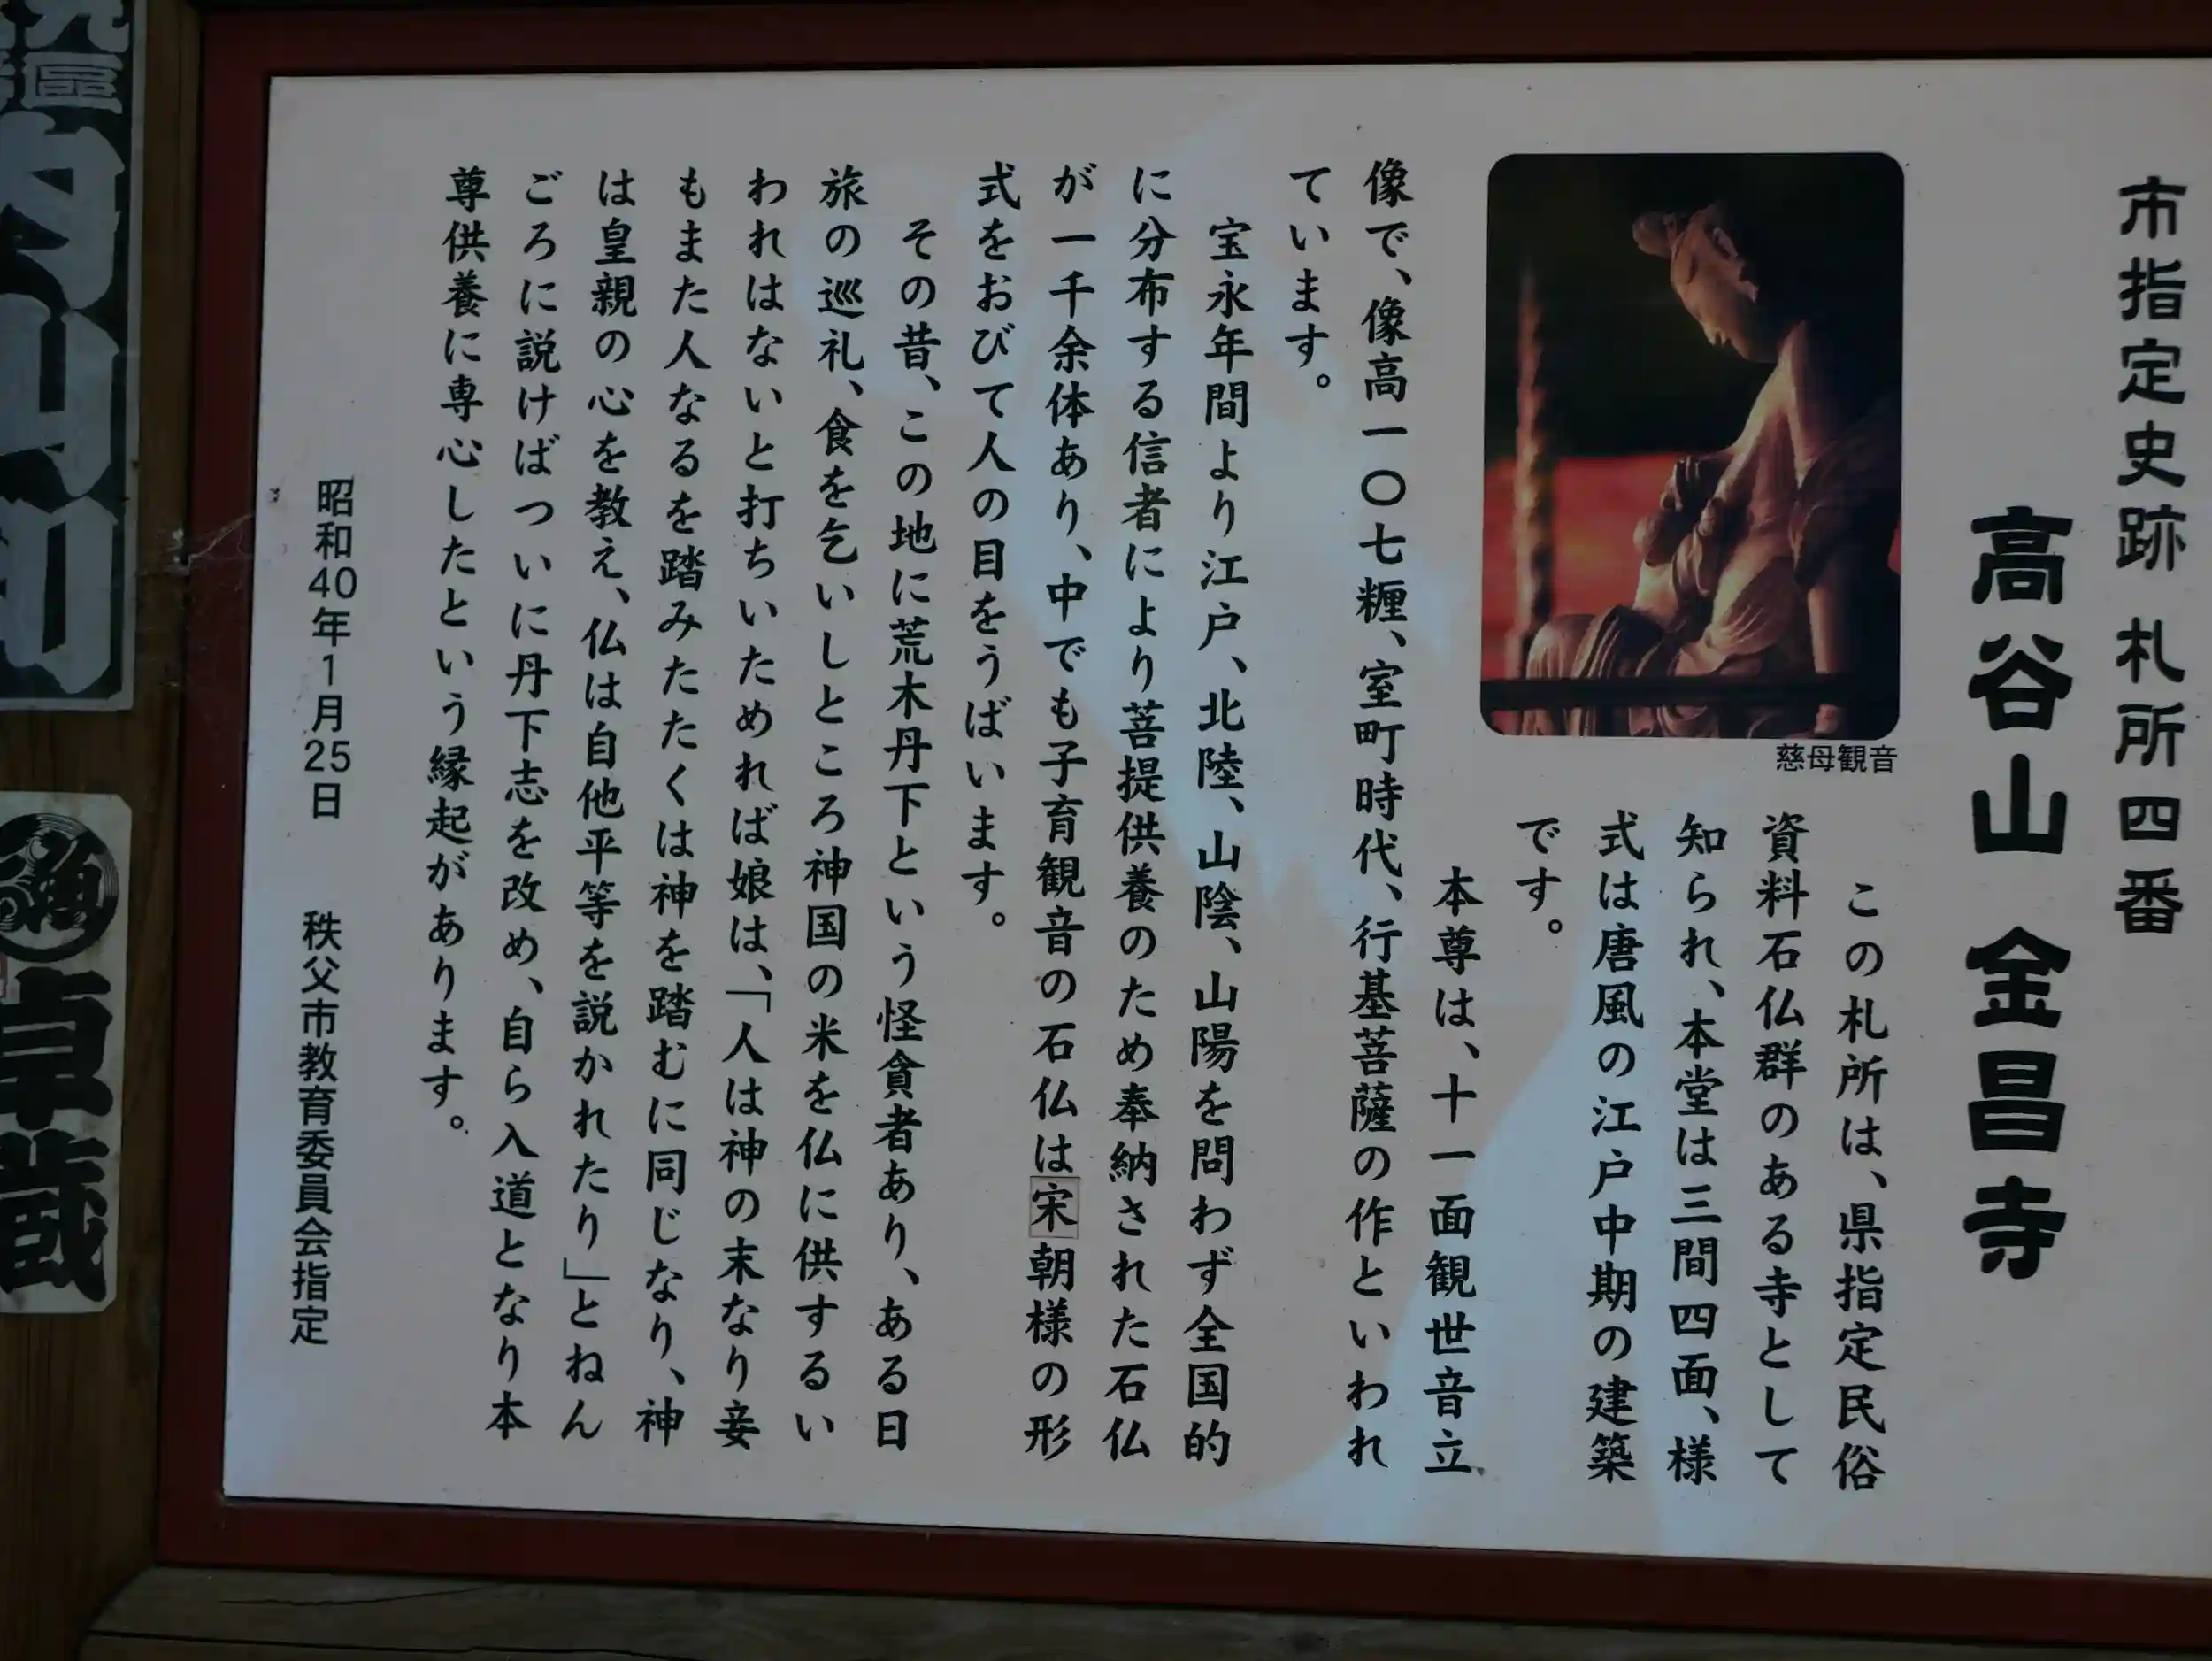 市指定史跡 札所四番
高谷山 金昌寺
慈母観音
この札所は、県指定民俗
資料石仏群のある寺として
知られ、本堂は三間四面、様
式は唐風の江戸中期の建築
です。
本尊は、十一面観世音立
像で、像高一〇七糎、室町時代、行基菩薩の作といわれ
ています。
宝永年間より江戸、北陸、山陰、山陽を問わず全国的
に分布する信者により菩提供養のため奉納された石仏
が一千余体あり、中でも子育観音の石仏は宋朝様の形
式をおびて人の目をうばいます。
その昔、この地に荒木丹下という怪貪者あり、ある日
旅の巡礼、食を乞いしところ神国の米を仏に供するい
われはないと打ちいためれば娘は、「人は神の末なり妾
もまた人なるを踏みたたくは神を踏むに同じなり、神
は皇親の心を教え、仏は自他平等を説かれたり」とねん
ごろに説けばついに丹下志を改め、自ら入道となり本
尊供養に専心したという縁起があります。
昭和40年1月25日 秩父市教育委員会指定
卓蔵